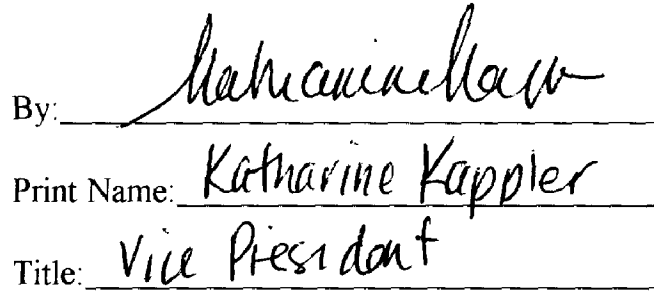 By:
Print Name: Katharine Kappler
Title: Vice President